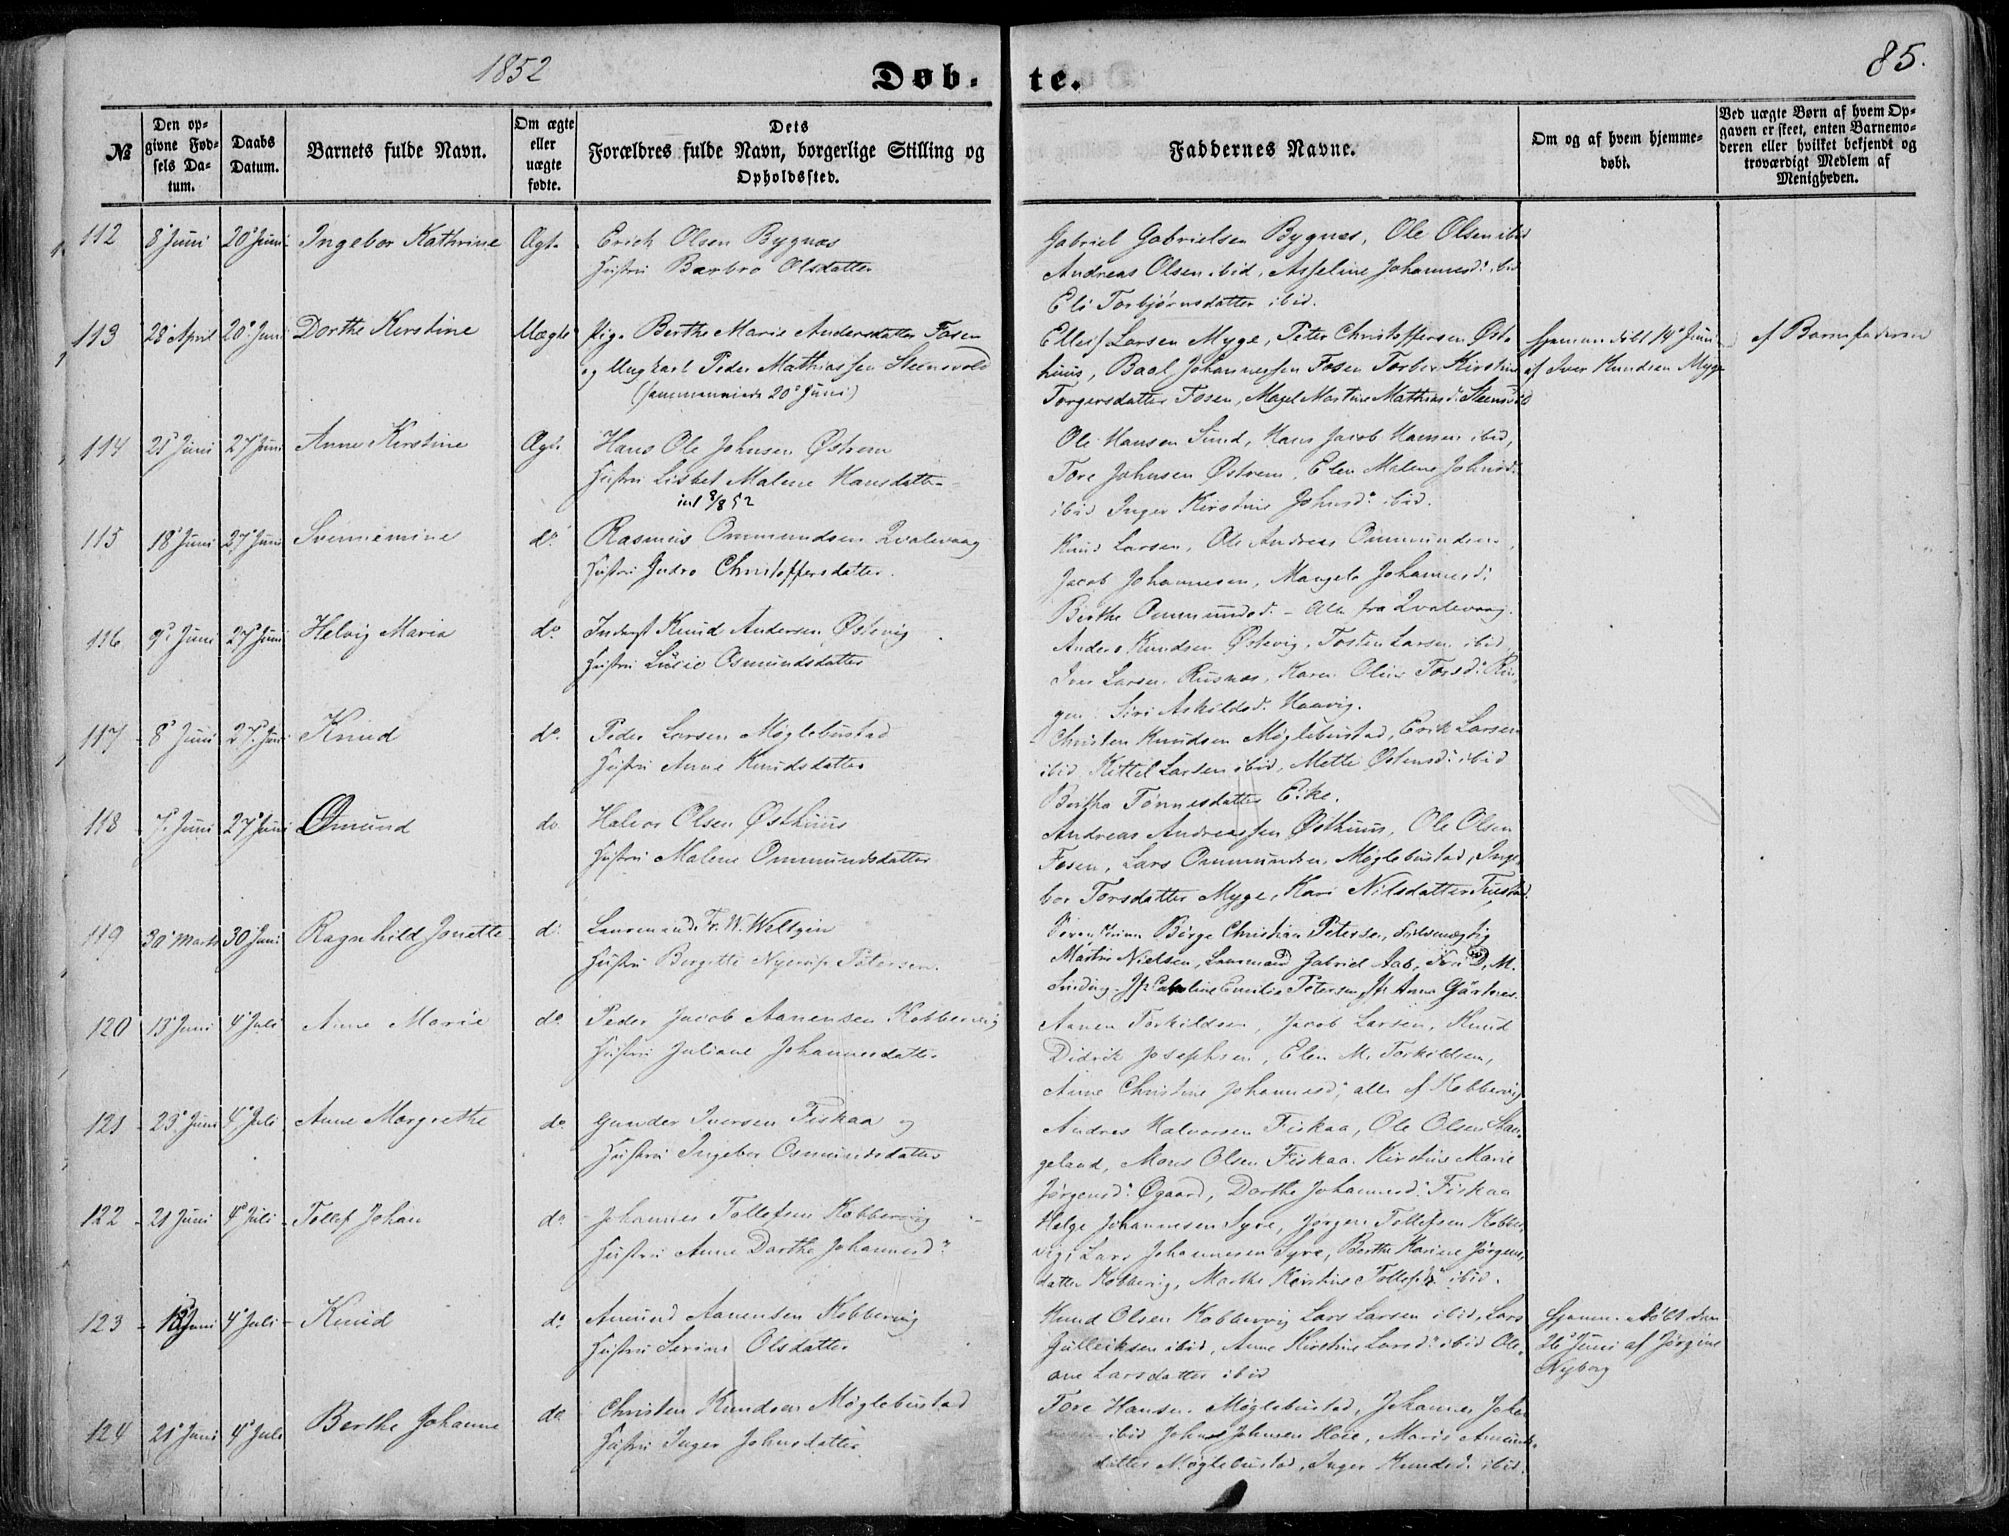 1852
Døb-
te.
85.
№
Den op-
givne Fød-
sels Da-
tum.
Daabs
Datum.
Barnets fulde Navn.
Om ægte
eller
uægte
fødte.
Dets
Forældres fulde Navn, borgerlige Stilling og
Opholdssted.
Faddernes Navne.
Om og af hvem hjemme-
døbt.
Ved uægte Børn af hvem Op-
gaven er skeet, enten Barnemo-
deren eller hvilket bekjendt og
troværdigt Medlem af
Menigheden.
112 8 Juni 20 Juni Ingebor Kathrine Ægt.
Erich Olsen Bygnæs
Hustru Barbro Olsdatter
Gabriel Gabrielsen Bygnæs, Ole Olsen ibid
Andreas Olsen ibid, Asseline Johannesd. ibid
Eli Torbjørnsdatter ibid.
113 28 April 20 Juni Dorthe Kirstine Uægte
Pige Berthe Marie Andersdatter Fosen
og Ungkarl Peder Mathiassen Steensvold
20 Juni)
Ellef Larsen Myge, Peter Christoffersen Øst-
huus, Johannessen Fosen Torber Kirstine
Torgersdatter Fosen, Martine Mathiasd.
døbt 14 Juni
af Iver Knudsen Myge
af Barnefaderen
114 21 Juni 27 Juni Anne Kirstine Ægt.
Hans Ole Johnsen Østrem
Hustru Lisbet Malene Hansdatter
8/8 52
Ole Hansen Sund, Hans Jacob Hansen ibid,
Tore Johnsen Østrem, Elen Malene Johnsd.
ibid Inger Kirstine Johnsd. ibid.
115 18 Juni 27 Juni do
Rasmus Ommundsen Qvalevaag
Hustru Christoffersdatter.
Knud Larsen, Ole Andreas Ommundsen,
Jacob Johannesen, Johannesd.
Berthe Ommundsd. - Alle fra Qvalevaag.
116 9 Juni 27 Juni Helvig Maria do
Knud Andersen Østevig
Hustru Lucie Osmundsdatter
Anders Knudsen Østevig, Tosten Larsen ibid
Iver Larsen Karen Oline Torsd.
Siri Askildsd. Haavig.
117 8 Juni 27 Juni Knud do
Peder Larsen Møglebustad
Hustru Anne Knudsdatter
Christen Knudsen Møglebustad, Erik Larsen
ibid Kittel Larsen ibid, Mette Østensd. ibid
Bertha Tønnesdatter Eike.
118 7 Juni 27 Juni Omund do
Halvor Olsen Østhuus
Hustru Malene Ommundsdatter
Andreas Andreassen Østhuus, Ole Olsen
Fosen, Lars Ommundsen Møglebustad, Inge-
bor Torsdatter Myge, Kari Nilsdatter
119 30 Marts 30 Juni Ragnhild Jonette do
Lensmand Fr. W. Weltzin
Hustru Birgitte Nyerup Petersen.
Børge Christian Petersen,
Martin Nielsen, Lensmand Gabriel Aab, D. M.
Sinding Caroline Emilie Petersen, Anna
120 13 Juni 4 Juli Anne Marie do
Peder Jacob Aanensen Kobbervig
Hustru Juliane Johannesdatter
Aanen Torkildsen, Jacob Larsen, Knud
Didrik Josephsen, Elen M. Torkildsen,
Anne Christine Johannesd. alle af Kobbervig
121 23 Juni 4 Juli Anne Margrethe do
Gunder Iversen Fiskaa og
Hustru Ingebor Osmundsdatter
Andres Halvorsen Fiskaa, Ole Olsen Stan-
geland, Mons Olsen Fiskaa Kirstine Marie
Jørgensd. Øgaard, Dorthe Johannesd. Fiskaa
122 21 Juni 4 Juli Tollef Johan do
Johannes Tollefsen Kobbervig
Hustru Anne Dorthe Johannesd.
Helge Johannesen Syre, Jørgen Tollefsen Kobber-
vig, Lars Johannesen Syre, Berthe Karine Jørgens-
datter Kobbervig, Marthe Kirstine Tollefsd. ibid.
123 Juni 4 Juli Knud do
Amund Aanensen Kobbervig
Hustru Serine Olsdatter
Knud Olsen Kobbervig Lars Larsen ibid, Lars
Gulleiksen ibid, Anne Kirstine Larsd. ibid Ole-
ane Larsdatter ibid
Hjemmedøbt den
26 Juni af Jørgine
Nyborg
124 21 Juni 4 Juli Berthe Johanne do
Christen Knudsen Møglebustad
Hustru Inger Johnsdatter
Tore Hansen Møglebustad, Johannes
ibid John Johnsen Hoie, Maris
datter Møglebustad, Inger Knudsd. ibid.